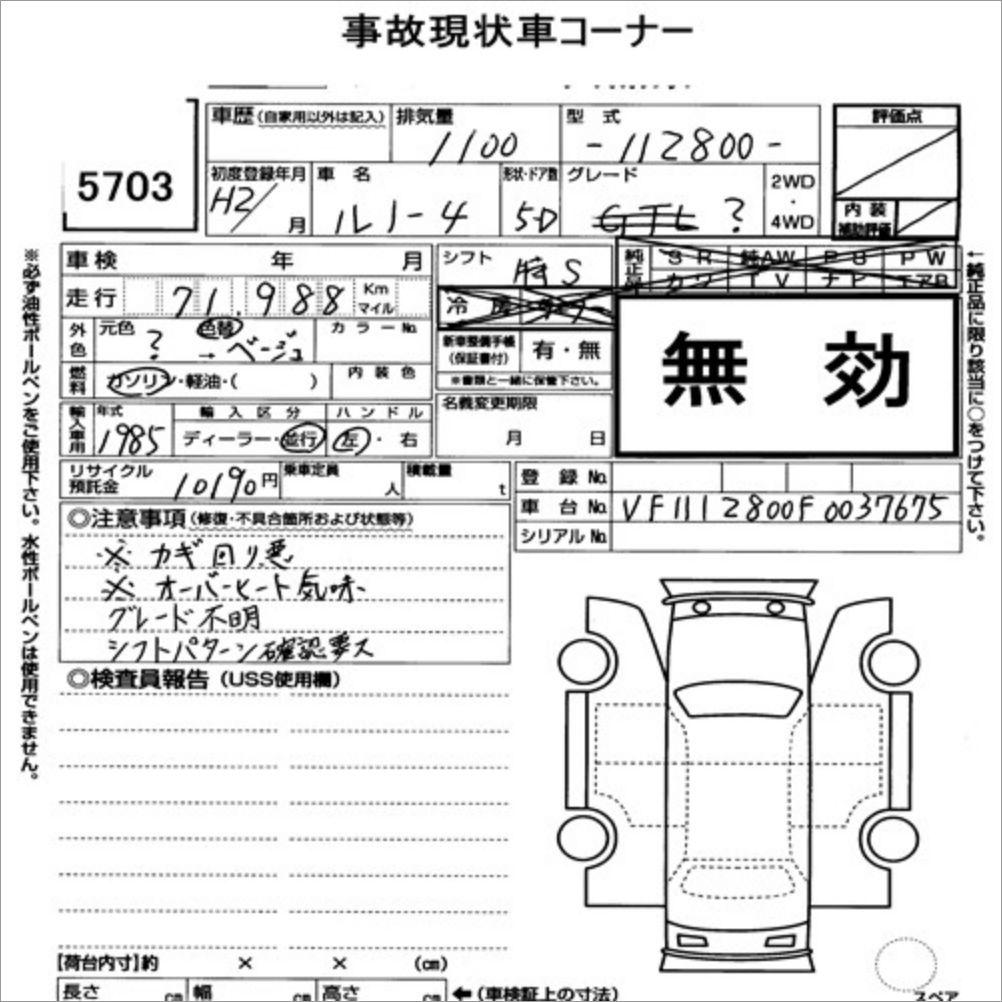 事故現状車コーナー
5703
車歴(自家用以外は記入)
排気量
1100
型式
-112800-
評価点
初度登録年月
H2/ 月
車名
ルノー4
形状・ドア数
5D
グレード
GTL ?
2WD
・
4WD
内装
補助評価
※必ず油性ボールペンをご使用下さい。水性ボールペンは使用できません。
車検 年 月
シフト
純正品
SR 純AW PS PW
カワ TV ナビ エアB
走行 71,988 Km マイル
冷房
外色
元色
?
色替
→ ベージュ
カラーNo.
新車整備手帳
(保証書付)
有・無
※書類と一緒に保管下さい。
無効
←純正品に限り該当に○をつけて下さい。
燃料
ガソリン・軽油・( )
内装色
輸入車用
年式
1985
輸入区分
ディーラー・並行
ハンドル
左・右
名義変更期限
月 日
リサイクル
預託金
10190円
乗車定員
人
積載量
t
登録No.
車台No. VF1112800F0037675
シリアルNo.
◎注意事項(修復・不具合箇所および状態等)
※ カギ回り悪
※ オーバーヒート気味
グレード不明
シフトパターン確認要ス
◎検査員報告(USS使用欄)
【荷台内寸】約 × × (cm)
長さ cm 幅 cm 高さ cm ←(車検証上の寸法)
スペア